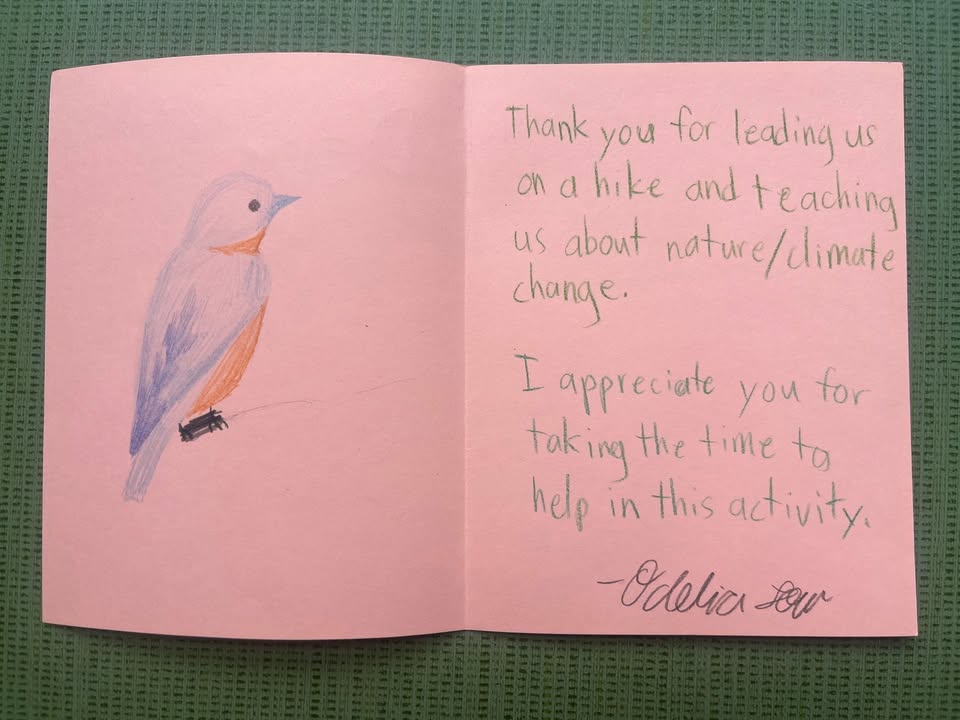 Thank you for leading us
on a hike and teaching
us about nature/climate
change.
I appreciate you for
taking the time to
help in this activity.
-Odelia